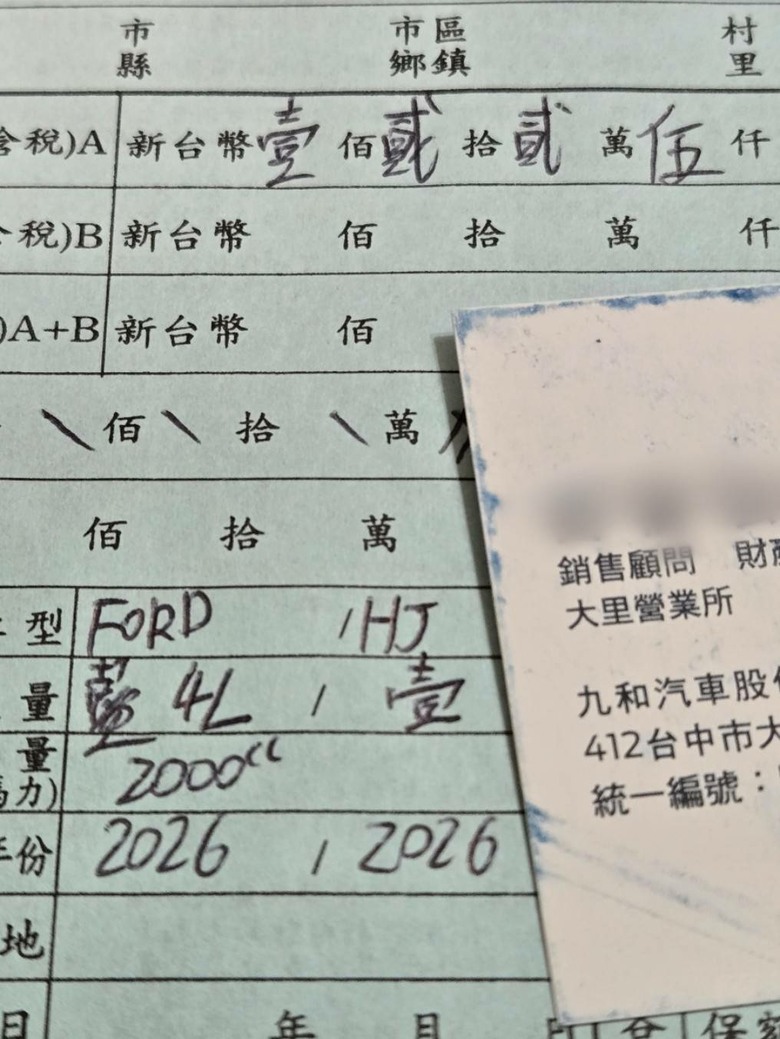 市 市區 村
縣 鄉鎮 里
含稅)A 新台幣壹佰貳拾貳萬伍仟
含稅)B 新台幣 佰 拾 萬 仟
)A+B 新台幣 佰
\佰\拾 \萬
佰 拾 萬
型 FORD / HJ
量 藍 4L / 壹
量 2000cc
馬力)
年份 2026 / 2026
地
日 年 月 保
銷售顧問 財產
大里營業所
九和汽車股份
412台中市大
統一編號：